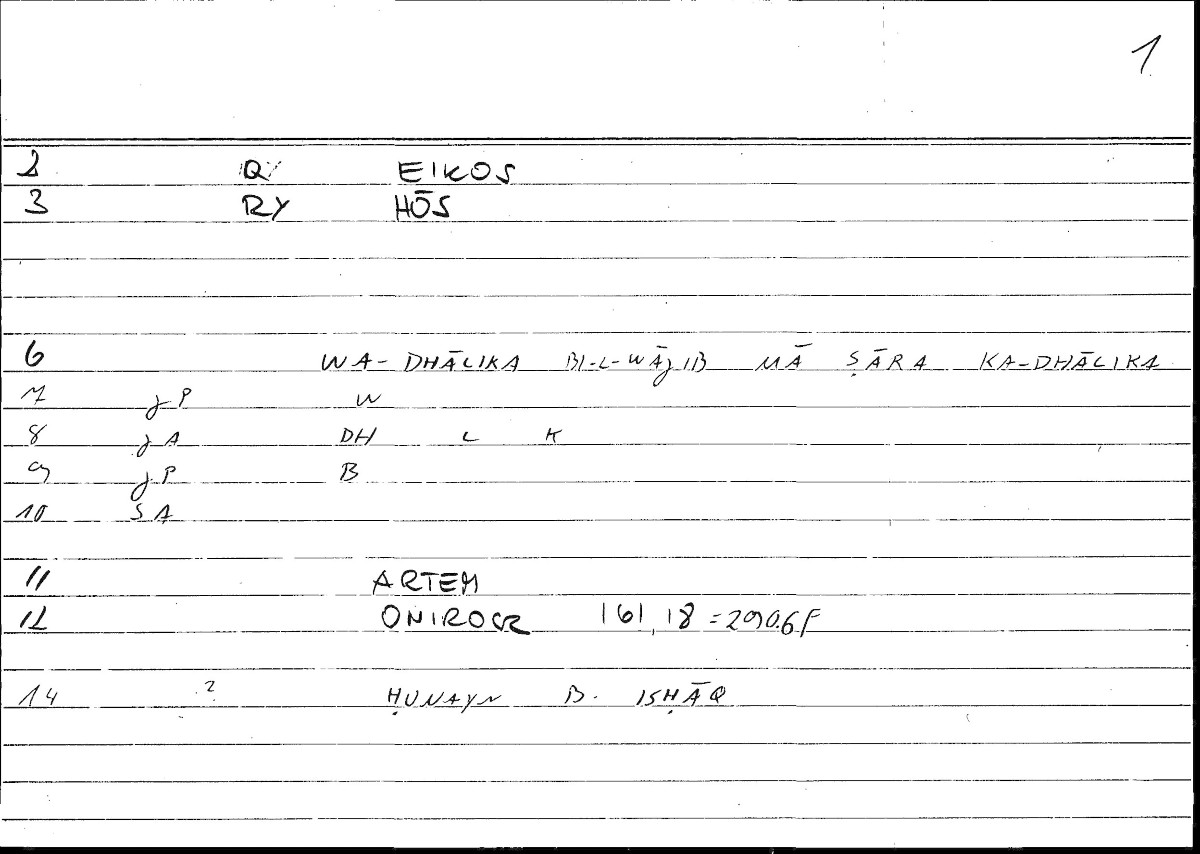 1
2 QY EIKOS
3 RY HŌS
6 WA-DHĀLIKA BI-L-WĀJIB MĀ ṢĀRA KA-DHĀLIKA
7 JP W
8 JA DH L K
9 JP B
10 SA
11 ARTEM
12 ONIROCR 161,18 = 290.6F
14 ? ḤUNAYN B. ISḤĀQ